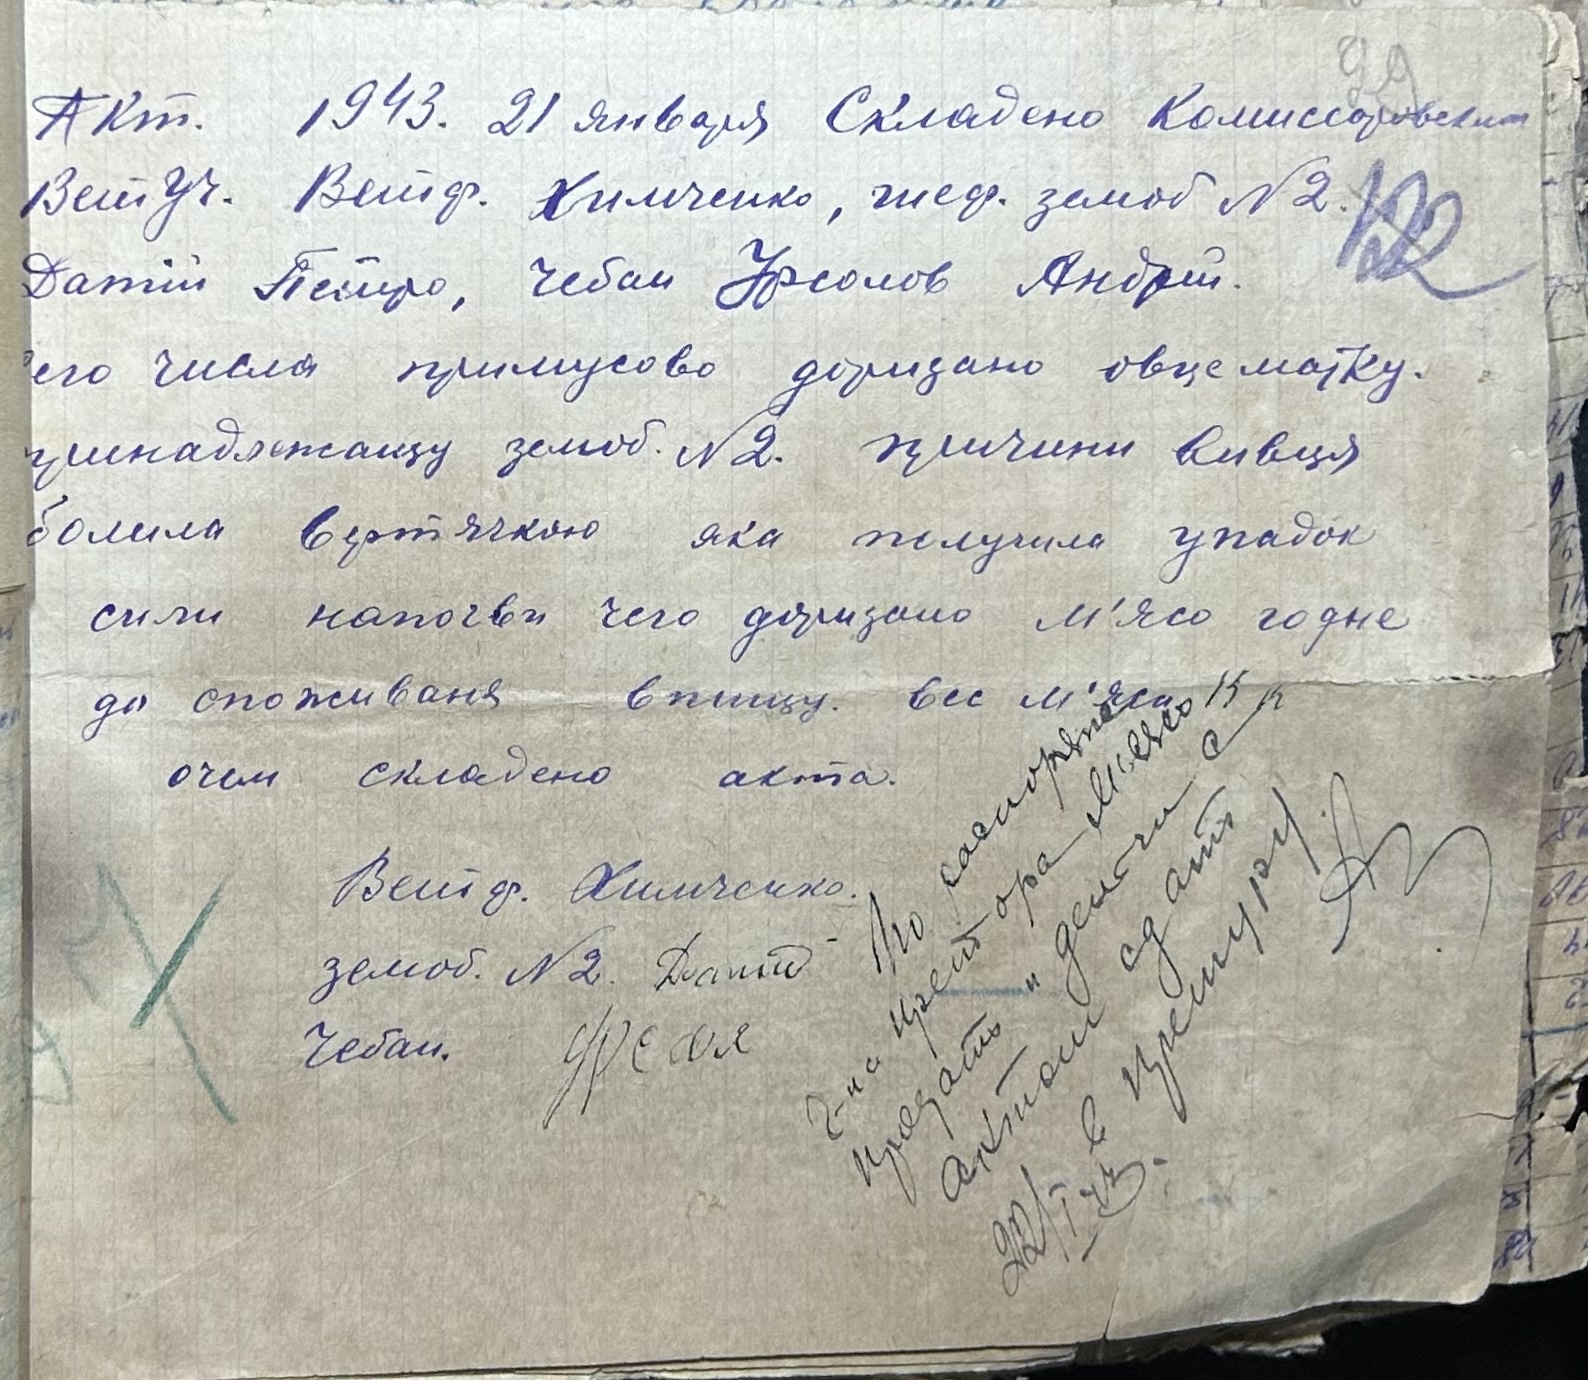 99
Акт. 1943. 21 января Складено Комиссаровским
ВетУч. Ветф. Химченко, шеф. земоб N2.
122
Датій Петро, чебан Урсолов Андрій.
его числа примусово доризано овцематку.
принадлежащу земоб. N2. причини вивця
болила вертячкою яка получила упадок
сили напочви чего доризано м'ясо годне
до споживаня в пищу. вес м'яса 15 к
очем складено акта.
Ветф. Химченко.
земоб. N2. Датій
Чебан.
По распоряже
г-на прет ора мясо
продать и деньги с
актом сдать
в претуру.
22/I